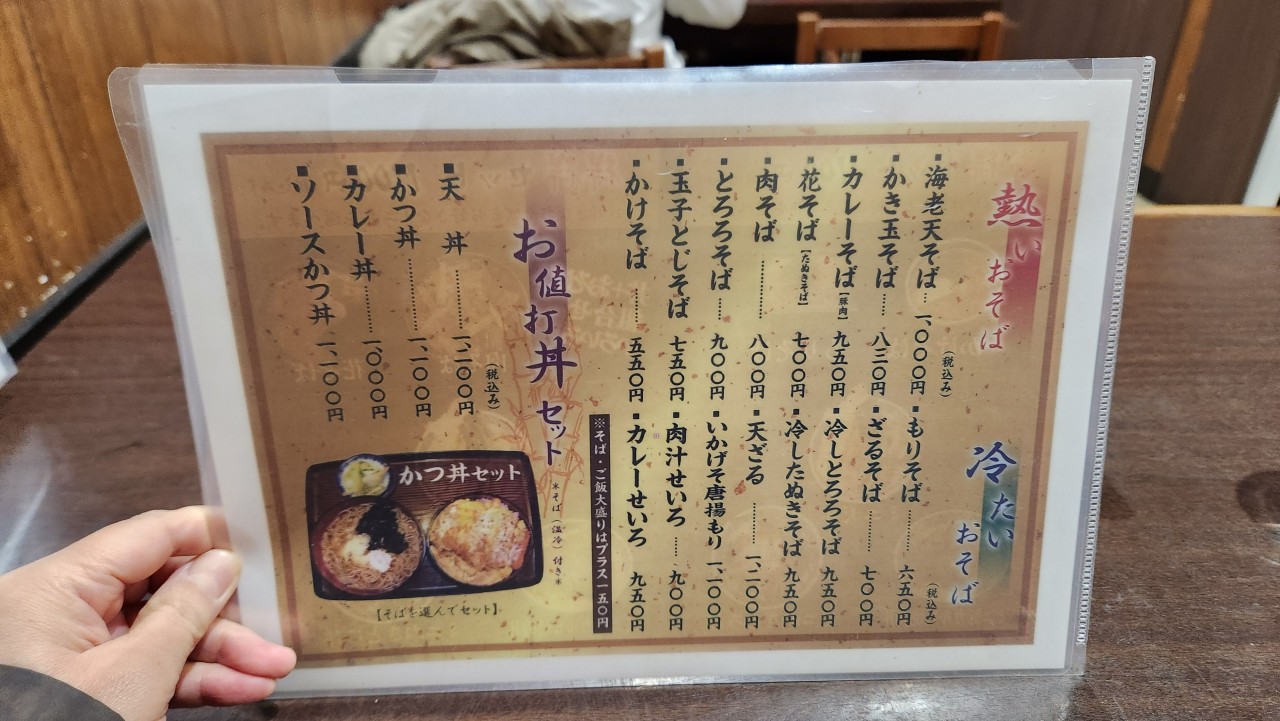 熱いおそば
(税込み)
■海老天そば…一、〇〇〇円
■かき玉そば……八三〇円
■カレーそば【豚肉】九五〇円
■花そば【たぬきそば】七〇〇円
■肉そば…………八〇〇円
■とろろそば……九〇〇円
■玉子とじそば 七五〇円
■かけそば………五五〇円
冷たいおそば
(税込み)
■もりそば………六五〇円
■ざるそば………七〇〇円
■冷しとろろそば 九五〇円
■冷したぬきそば 九五〇円
■天ざる…………一、二〇〇円
■いかげそ唐揚もり 一、一〇〇円
■肉汁せいろ……九〇〇円
■カレーせいろ 九五〇円
※そば・ご飯大盛りはプラス一五〇円
お値打丼セット
※そば(温冷)付き※
(税込み)
■天丼…………一、二〇〇円
■かつ丼…………一、一〇〇円
■カレー丼………一、〇〇〇円
■ソースかつ丼 一、一〇〇円
かつ丼セット
【そばを選んでセット】